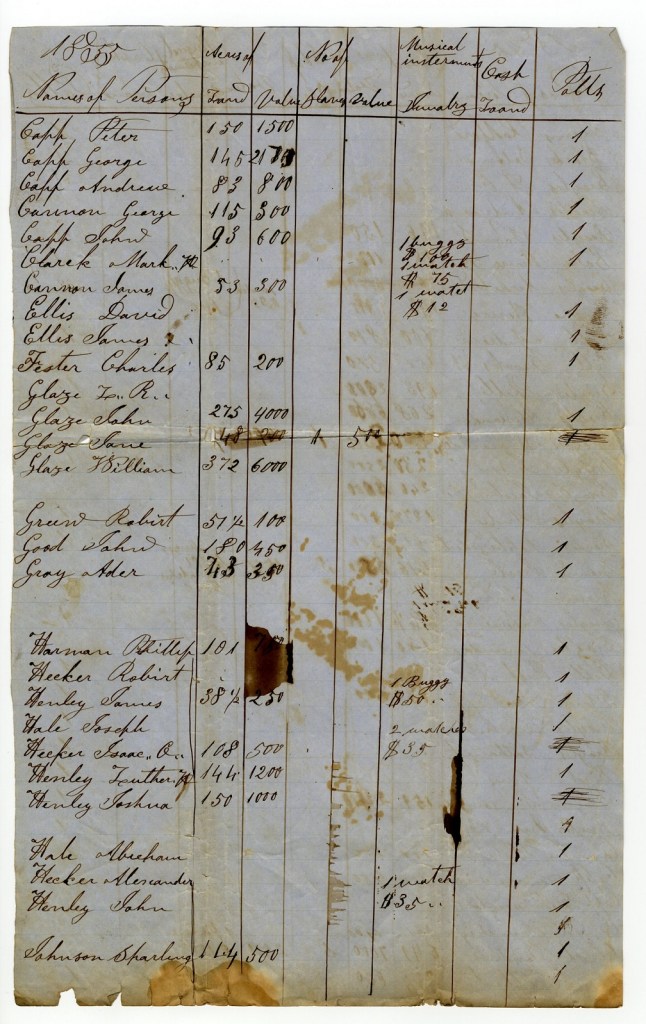 1855 Acres of No of Musical insterments Cash
Names of Persons Land Value Slaves Value Juwalry Loand Polls
Capp Peter 150 1500 1
Capp George 145 1
Capp Andrew 83 800 1
Cannon George 115 300 1
Capp John 93 600 1 buggy 1
Clarck Mark 1 watch 1
Cannon James 53 300 $ 75
1 watch
Ellis David $ 12 1
Ellis James 1
Fester Charles 85 200 1
Glaze L.. R..
Glaze John 275 4000 1
Glaze Jane 148 200 1 500 1
Glaze William 372 6000
Green Robirt 51½ 100 1
Good John 180 450 1
Gray Ader 43 350 1
Harman Phillip 181 1
Hecker Robirt 1 Buggy 1
Henley James 38½ 250 $50.. 1
Hale Joseph 2 watches 1
Hecker Isaac.. O.. 108 500 $35 1
Henley Luther 144 1200 1
Henley Joshua 150 1000 1
Hale Abecham 1
Hecker Alexander 1 watch 1
Henley John $35.. 1
Johnson Sparling 144 500 1
1